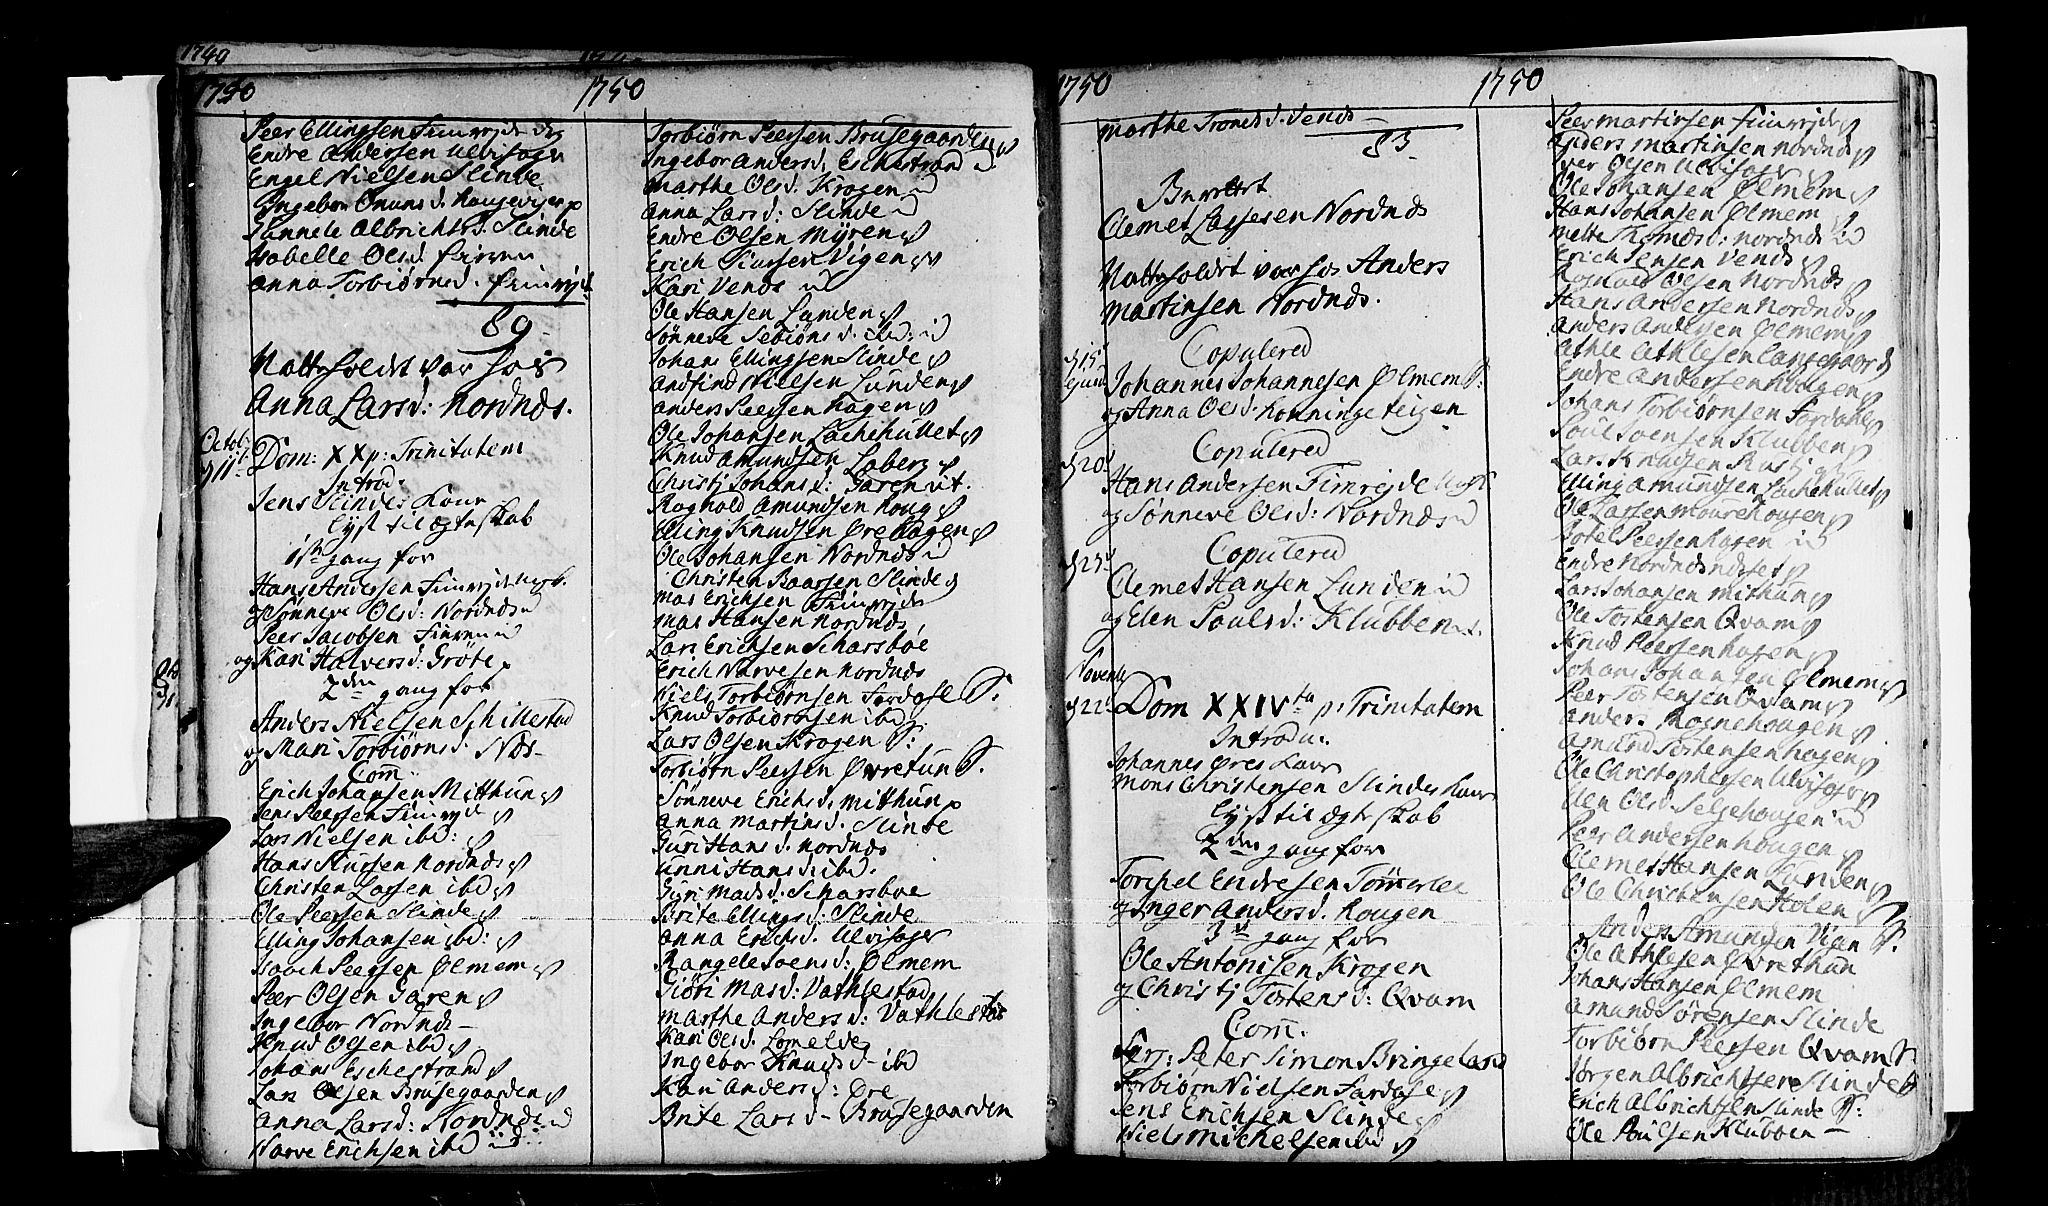 1740
1750 1750
Peer Ellingsen Fimrejde
Endre Andersen Ulvisager
Engel Nielsen Slinde
Ingebor Omunsd.
Gunnele Albrichtsd. Slinde
Isabelle Olsd.
Anna Torbiørnsd. Fimrejt
89
Natteholdt var hos
Anna Larsd: Nordnds.
Octob:
d 11t Dom: XX p: Trinitatem
Introd:
Jens Slindes Kone
Lyst til ægteskab
1ste gang for
Hans Andersen Fimrejde
og Sønneve Olsd: Nordnds
Peer Jacobsen
og Kari Halversd: Grøte
2den gang for
Anders Nielsen Schillestad
og Mari Torbiørnsd. Næs
Com
Erich Johansen Mitthun
Jens Peersen Fimrejd
Lars Nielsen ibd:
Hans Siursen Nordnds
Christen Lassen ibd
Ole Peersen Slinde
Elling Johansen ibd:
Isach Peersen Ølmem
Peer Olsen Garen
Ingebor Nordnds
Knud Olsen ibd
Johans Eschestrand
Lars Olsen Brusegaarden
Anna Larsd: Nordnds
Narve Erichsen ibd
Torbiørn Peersen Brusegaarden
Ingebor Andersd: Eschestrand
Marthe Olsd: Krogen
Anna Larsd: Slinde
Endre Olsen Myren
Erich Siursen Vigen
Kari Vends
Ole Hansen Lunden
Sønneve Sebiønsd: ibd:
Johans Ellingsen Slinde
Andfind Nielsen Lunden
Anders Peersen Hagen
Ole Johansen Lachehullet
Knud Amundsen Laberg
Christj Johansd: Garen
Rognald Amundsen Houg
Elling Knudsen Ørehagen
Ole Johansen Nordnds
Christen Baarsen Slinde
Mas Erichsen Fimrejde
Mas Hansen Nordnds
Lars Erichsen Scharsboe
Erich Narvesen Nordnds
Niels Torbiørnsen Fardahl S:
Knud Torbiørnsen ibd.
Lars Olsen Krogen S:
Torbiørn Peersen Øvretun S.
Sønneve Erichsd: Mitthun
Anna Martinsd. Slinde
Guri Hansd. Nordnds
Unni Hansd: ibd.
Giøri Madsd: Scharsboe
Brite Ellingsd. Slinde
Anna Erichsd. Ulvisager
Rangele Joensd: Ølmem
Giøri Masd: Vathlestad
Marthe Andersd: Vathlestad
Kari Olsd. Lomelde
Ingebor Knudsd. ibd
Kari Andersd: Øre
Brite Larsd. Brusegaarden
1750 1750
Marthe Tronsd. Vends
83
Clemet Lassesen Nordnds
Natteholdt var hos Anders
Martinsen Nordnds.
d 15 Copulered
Johannes Johannesen Ølmem S:
og Anna Olsd. Konningeteigen
d 20 Copulered
Hans Andersen Fimrejde
og Sønneve Olsd: Nordnds
d 25 Copulered
Clemet Hansen Lunden
og Elen Poulsd: Klubben
Novemb
d 22 Dom XXIVta p: Trinitatem
Introdu.
Johannes Øres Kone
Mons Christensen Slindes Kone
Lyst til ægteskab
2den gang for
Torchel Endresen Tømmerlea
og Inger Andersd. Hougen
3die gang for
Ole Antonisen Krogen
og Christj Tostensd: Qvam
Com:
Serj: Peter Simon Bringeland
Torbiørn Nielsen Fardahl
Jens Erichsen Slinde
Niels Michelsen ibd
Peer Martinsen Fimrejde
Anders Martinsen Nordnds
Iver Olsen Ulvisager
Ole Johansen Ølmem
Hans Johansen Ølmem
Mette Tomasd: Nordnds
Erich Jensen Vends
Rognald Olsen Nordnds
Hans Andersen Nordnds
Anders Andersen Ølmem
Athle Athlesen Langehaar
Endre Andersen Hougen
Johans Torbiørnsen Fardahl
Poul Joensen Klubben
Lars Knudsen
Elling Amundsen Lachehullet
Ole Larsen Mourehougen
Botel Peersen Hagen
Endre Nordndsndeset
Lars Johansen Mithun
Ole Tostensen Qvam
Knud Peersen Hagen
Johans Johansen Ølmem
Peer Tostensen Qvam
Anders Rognehougen
Amund Tostensen Hagen
Ole Christophersen Ulvisager
Elen Olsd. Selsehougen
Peer Andersen Hougen
Clemet Hansen Lunden
Ole Christensen Holen
Anders Amunsen Vigen S.
Ole Athlesen Øvrethun
Johans Hansen Ølmem
Amund Sørensen Slinde
Torbiørn Peersen Qvam S.
Jørgen Albrichtsen Slinde
Erich Albrichtsen Slinde S:
Ole Poulsen Klubben